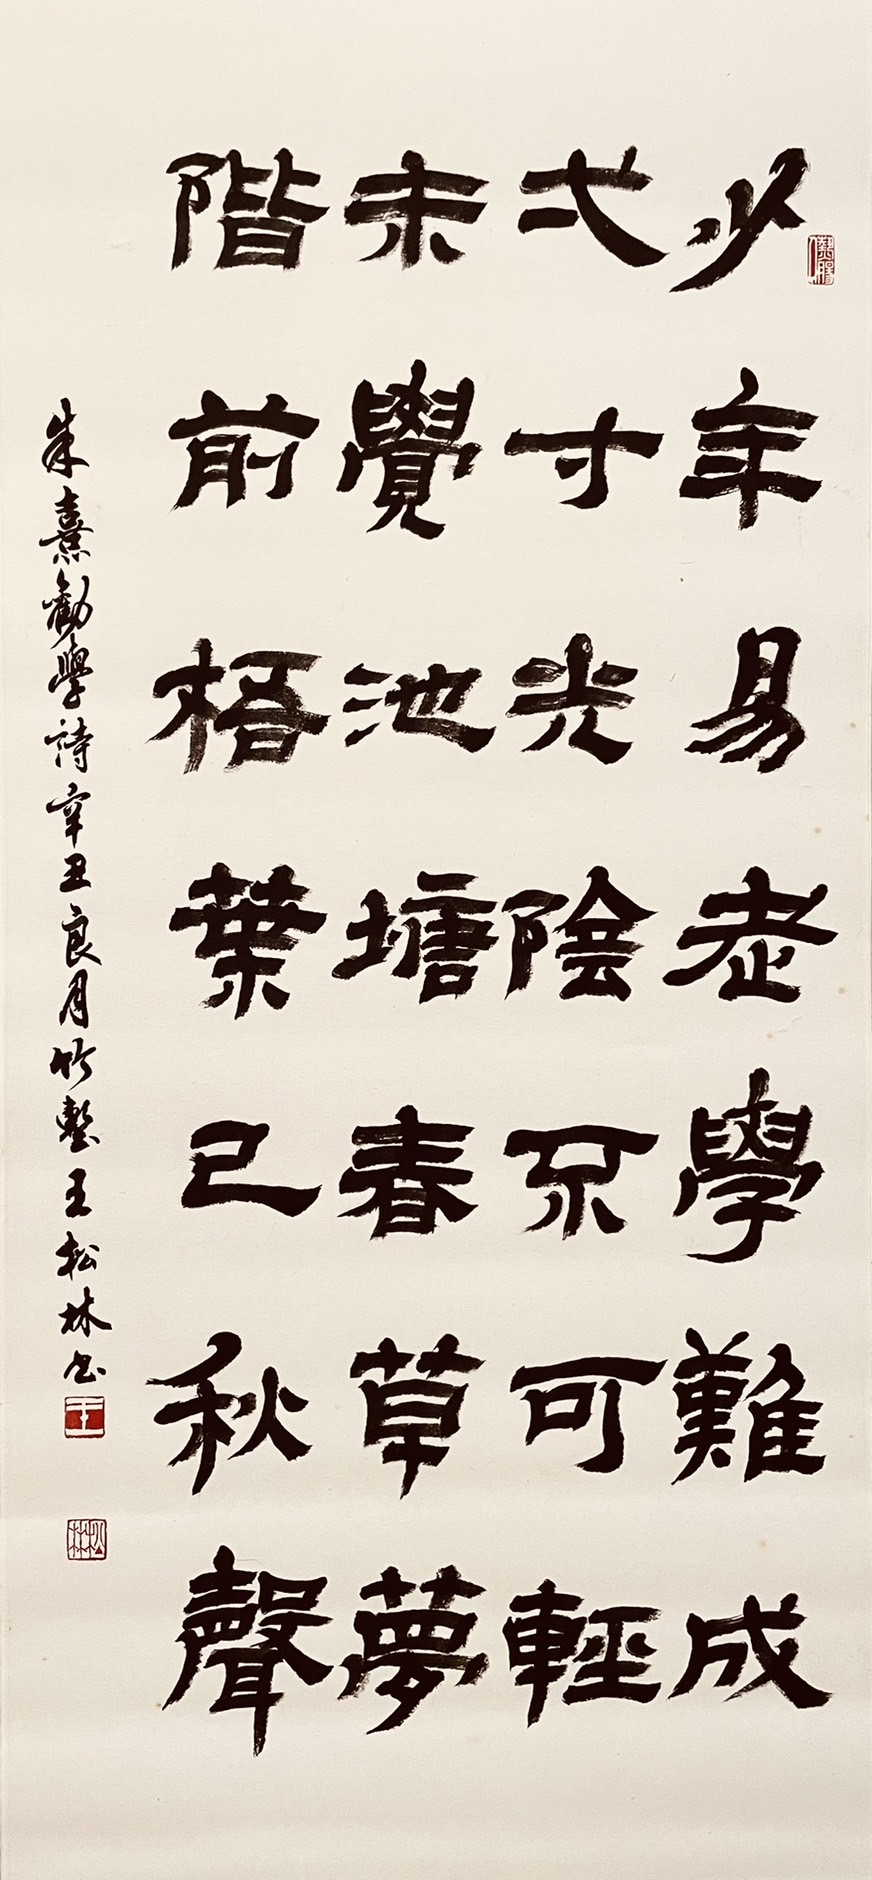 少年易老學難成
弌寸光陰不可輕
未覺池塘春草夢
階前梧葉已秋聲
朱熹勸學詩辛丑良月竹塹王松林書
王
松林